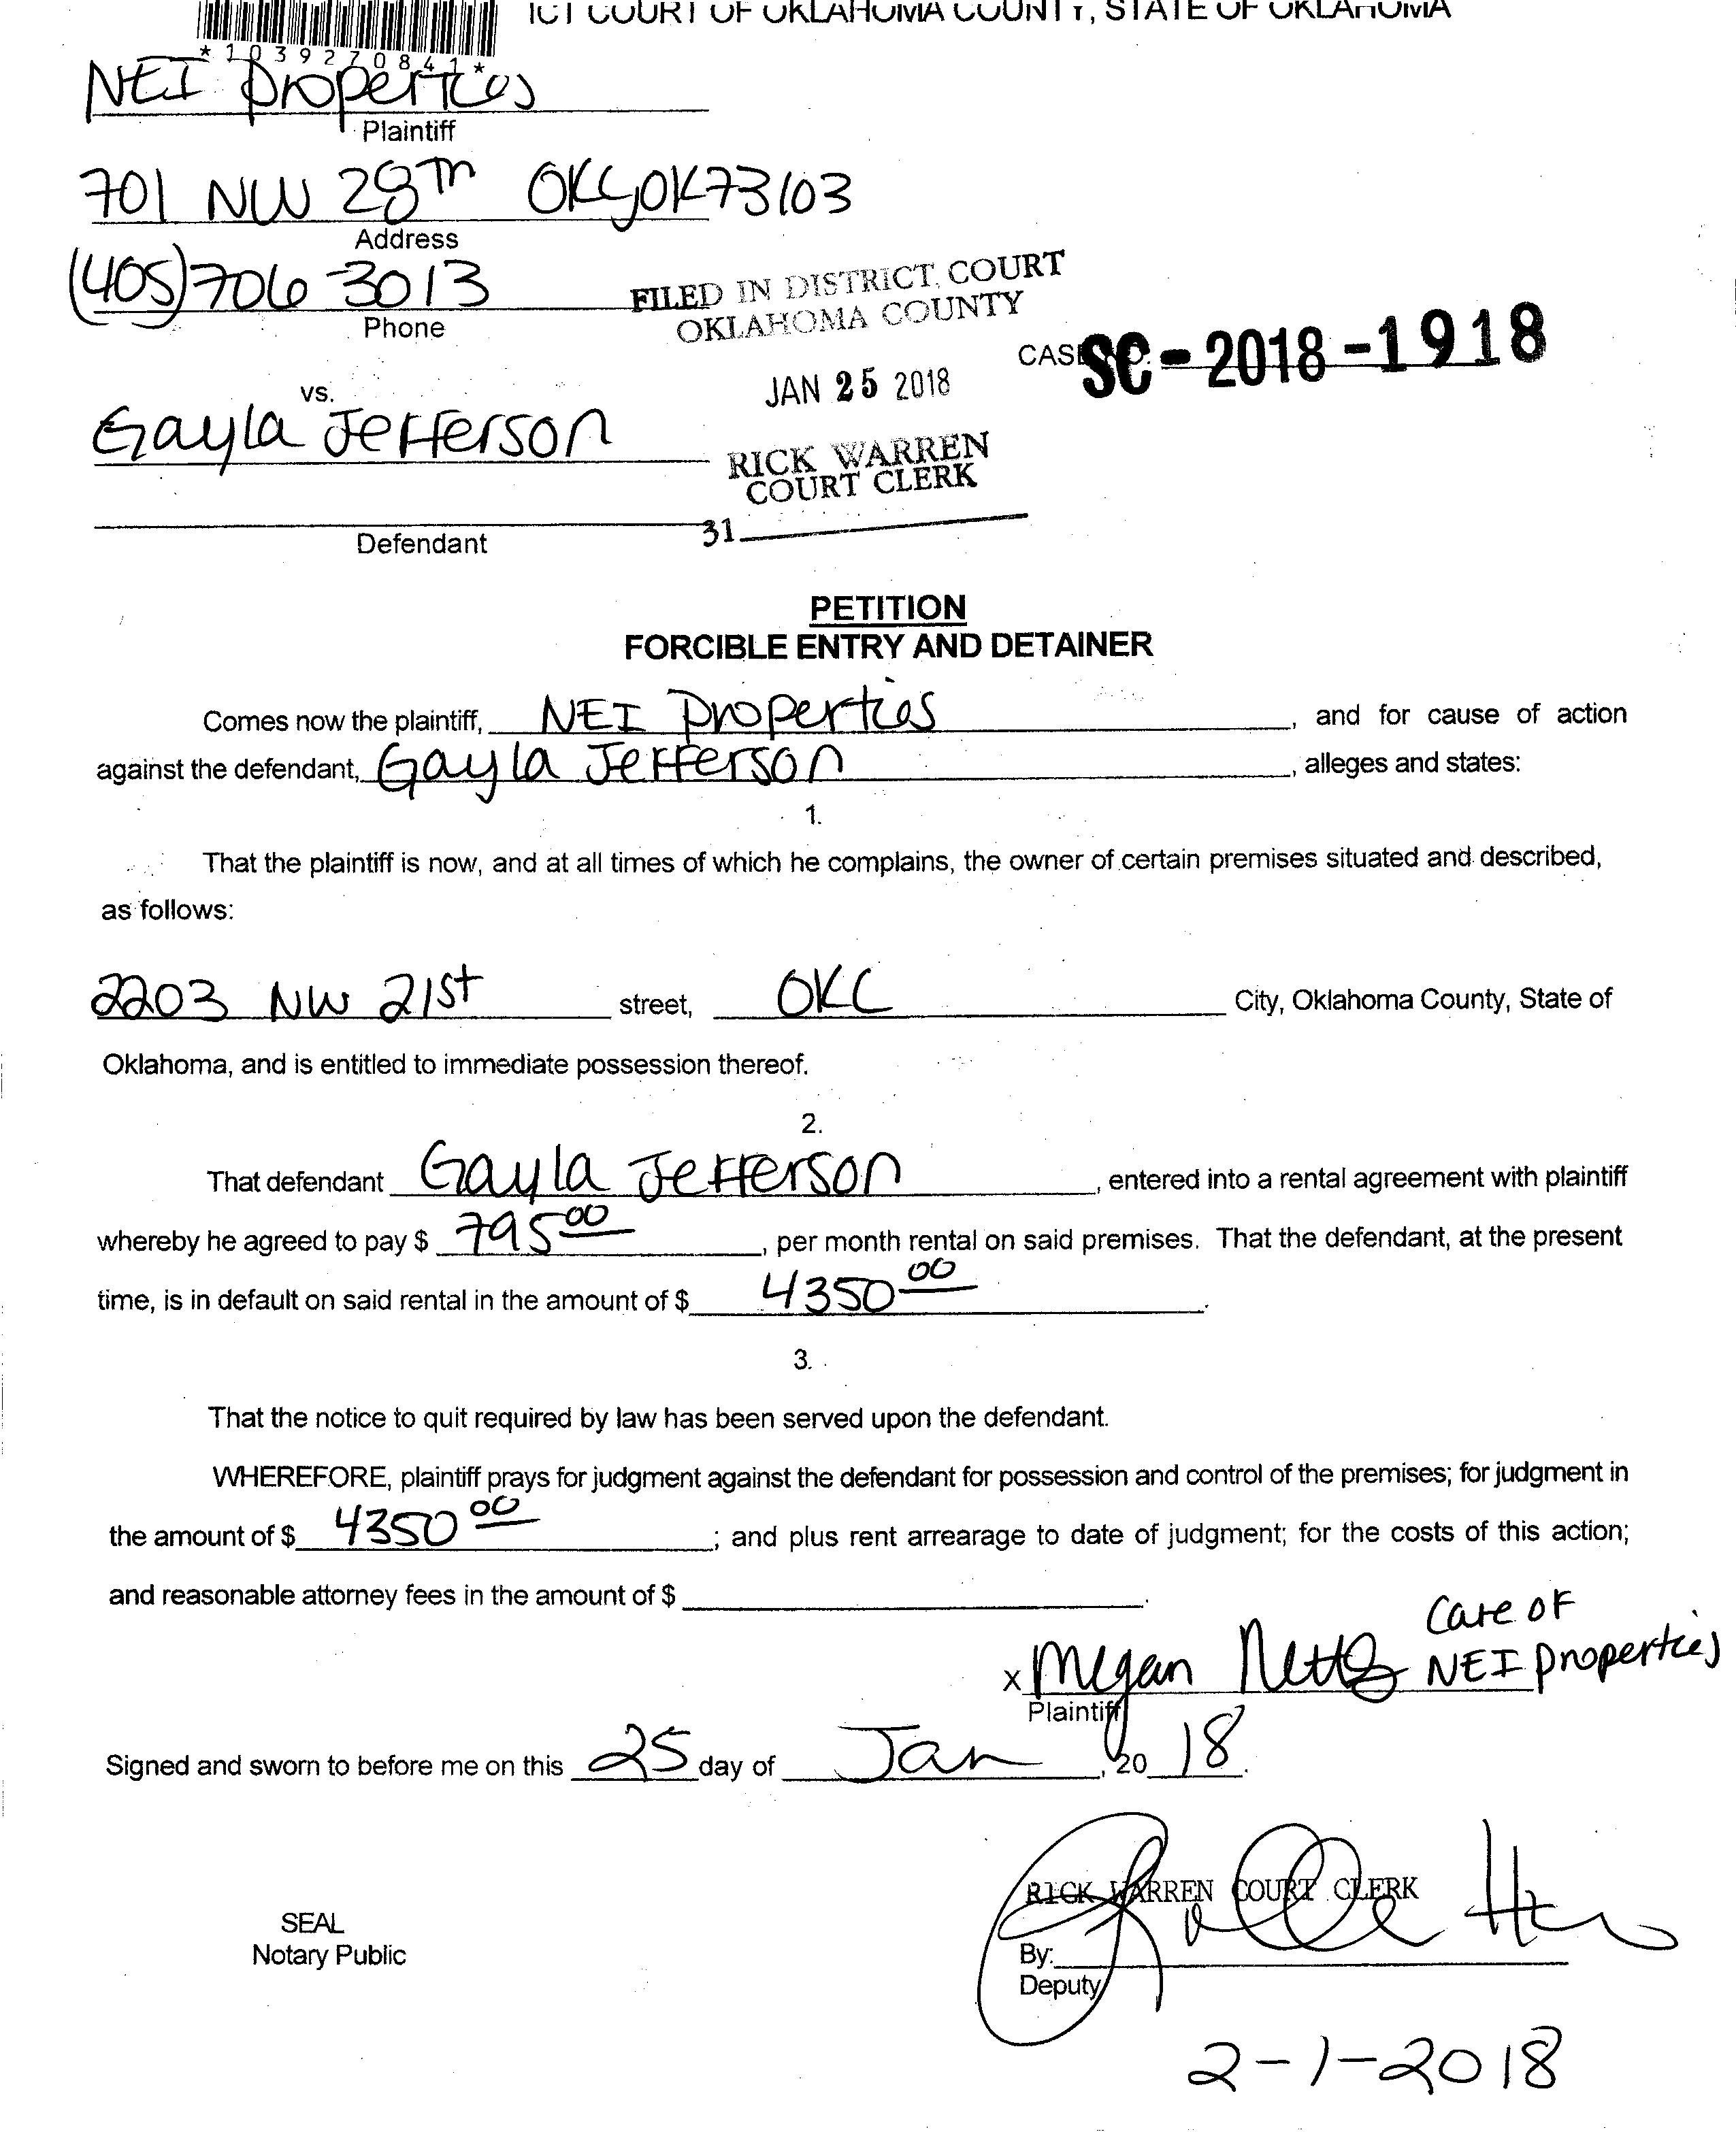 ICT COURT OF OKLAHOMA COUNTY, STATE OF OKLAHOMA
*1039270841*
NEI Properties
Plaintiff
701 NW 28th OKC, OK 73103
Address
(405) 706-3013
Phone
FILED IN DISTRICT COURT
OKLAHOMA COUNTY
CASE NO. SC-2018-1918
JAN 25 2018
vs.
Gayla Jefferson
RICK WARREN
COURT CLERK
31
Defendant
PETITION
FORCIBLE ENTRY AND DETAINER
Comes now the plaintiff, NEI Properties, and for cause of action
against the defendant, Gayla Jefferson, alleges and states:
1.
That the plaintiff is now, and at all times of which he complains, the owner of certain premises situated and described,
as follows:
2203 NW 21st street, OKC City, Oklahoma County, State of
Oklahoma, and is entitled to immediate possession thereof.
2.
That defendant Gayla Jefferson, entered into a rental agreement with plaintiff
whereby he agreed to pay $ 795 00, per month rental on said premises. That the defendant, at the present
time, is in default on said rental in the amount of $ 4350 00.
3.
That the notice to quit required by law has been served upon the defendant.
WHEREFORE, plaintiff prays for judgment against the defendant for possession and control of the premises; for judgment in
the amount of $ 4350 00; and plus rent arrearage to date of judgment; for the costs of this action;
and reasonable attorney fees in the amount of $
Care of
x Megan NEI properties
Plaintiff
Signed and sworn to before me on this 25 day of Jan, 2018.
RICK WARREN COURT CLERK
SEAL
Notary Public
By:
Deputy
2-1-2018